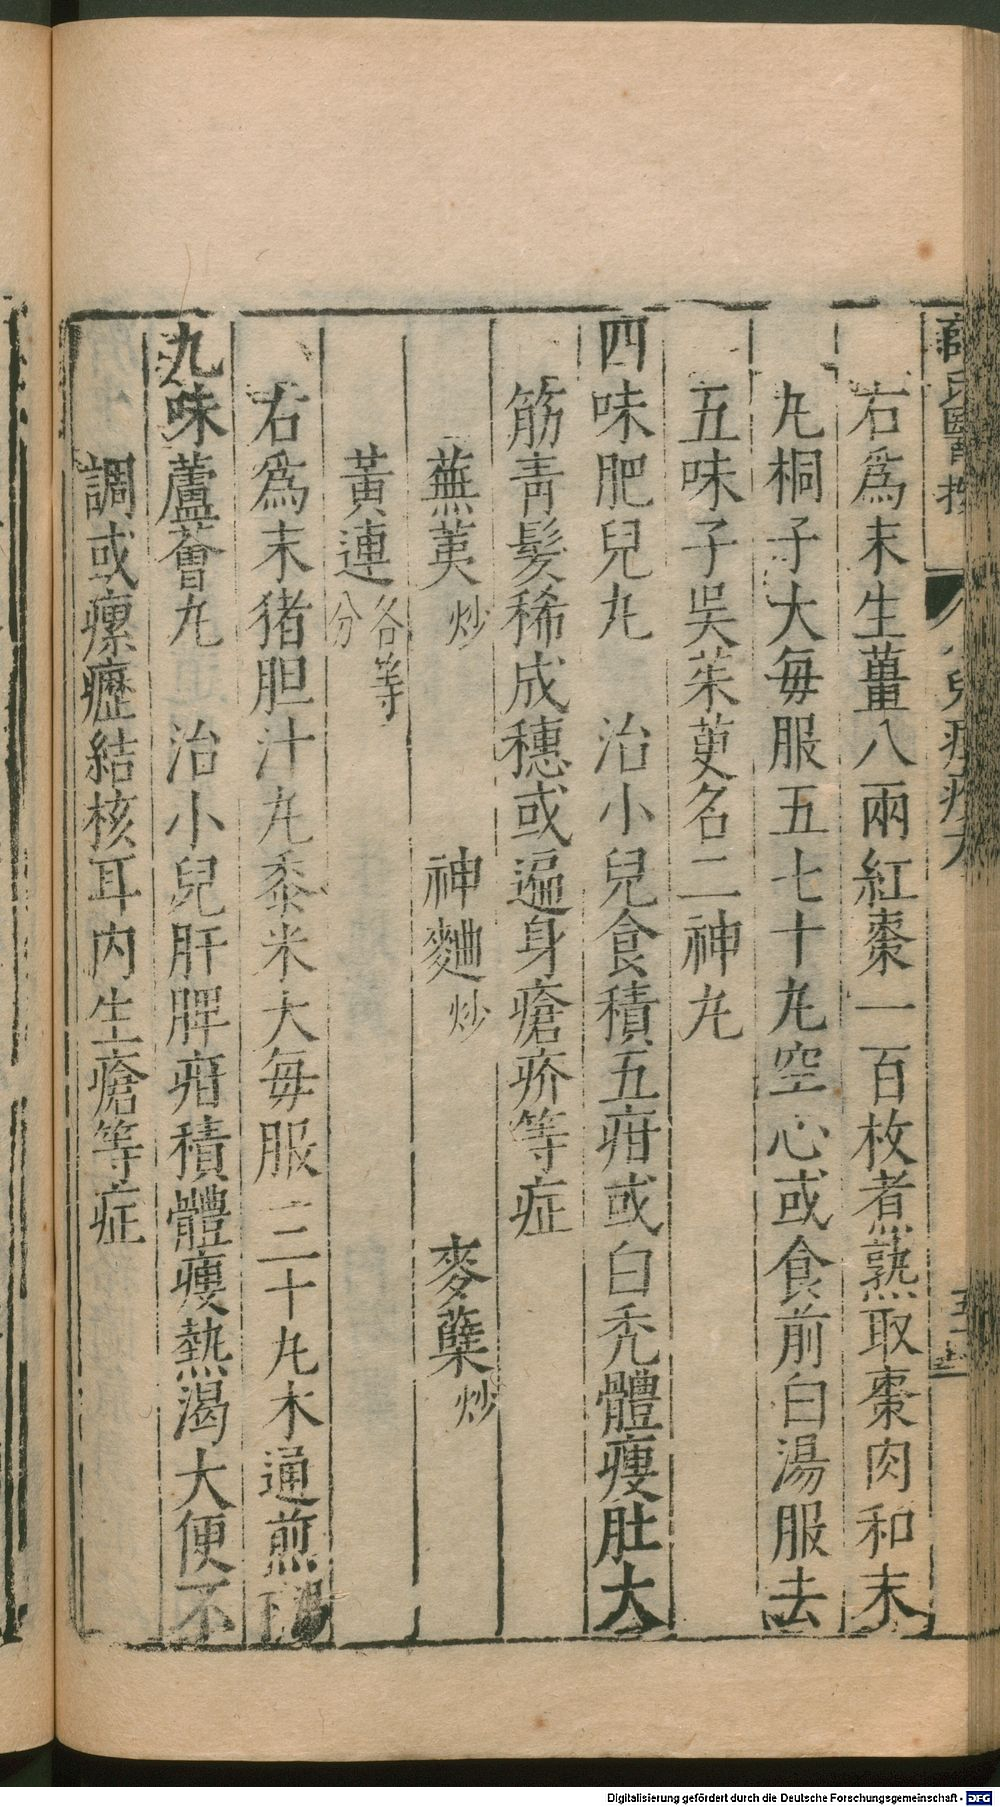 薛氏醫按
右爲末生薑八兩紅棗一百枚煮熟取棗肉和末
丸桐子大每服五七十丸空心或食前白湯服去
五味子吳茱萸名二神丸
四味肥兒丸　治小兒食積五疳或白秃體瘦肚大
筋青髮稀成穗或遍身瘡疥等症
蕪荑炒　神麯炒　麥蘗炒
黃連各等分
右爲末猪胆汁丸黍米大每服二三十丸木通煎湯下
九味蘆薈丸　治小兒肝脾疳積體瘦熱渴大便不
調或瘰癧結核耳内生瘡等症
Digitalisierung gefördert durch die Deutsche Forschungsgemeinschaft - DFG